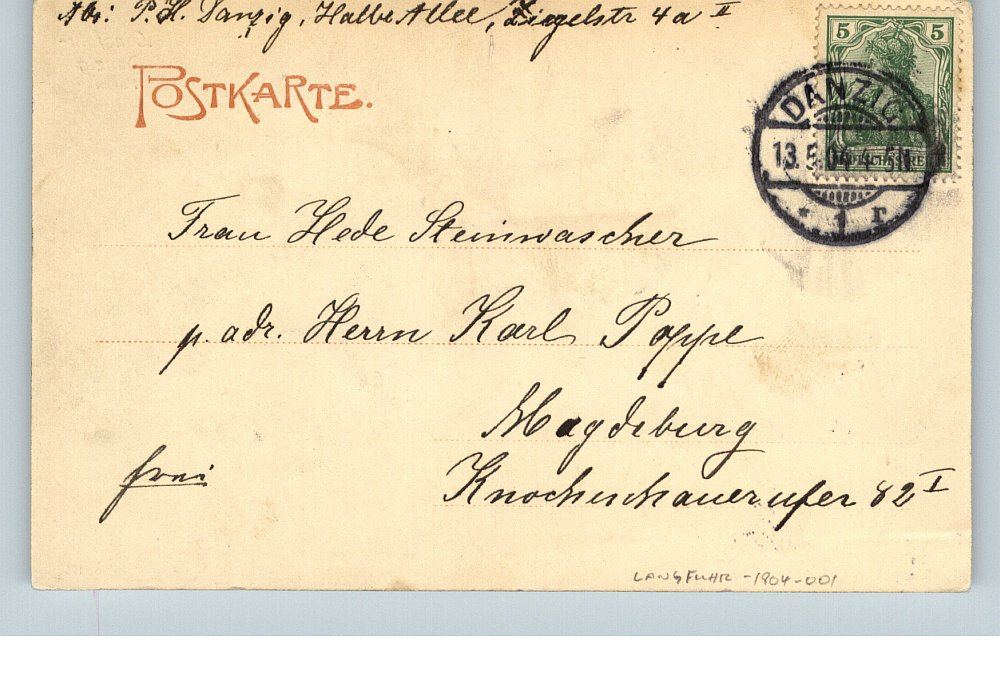 Abs: P. H. Danzig, Halbe Allee, Ziegelstr 4a II
POSTKARTE.
5 5
DANZIG
13.5.04 4-5N
* 1 r
Frau Hede Steinwascher
p. adr. Herrn Karl Poppe
Magdeburg
frei
Knochenhauerufer 82 I
LANGFUHR -1904-001